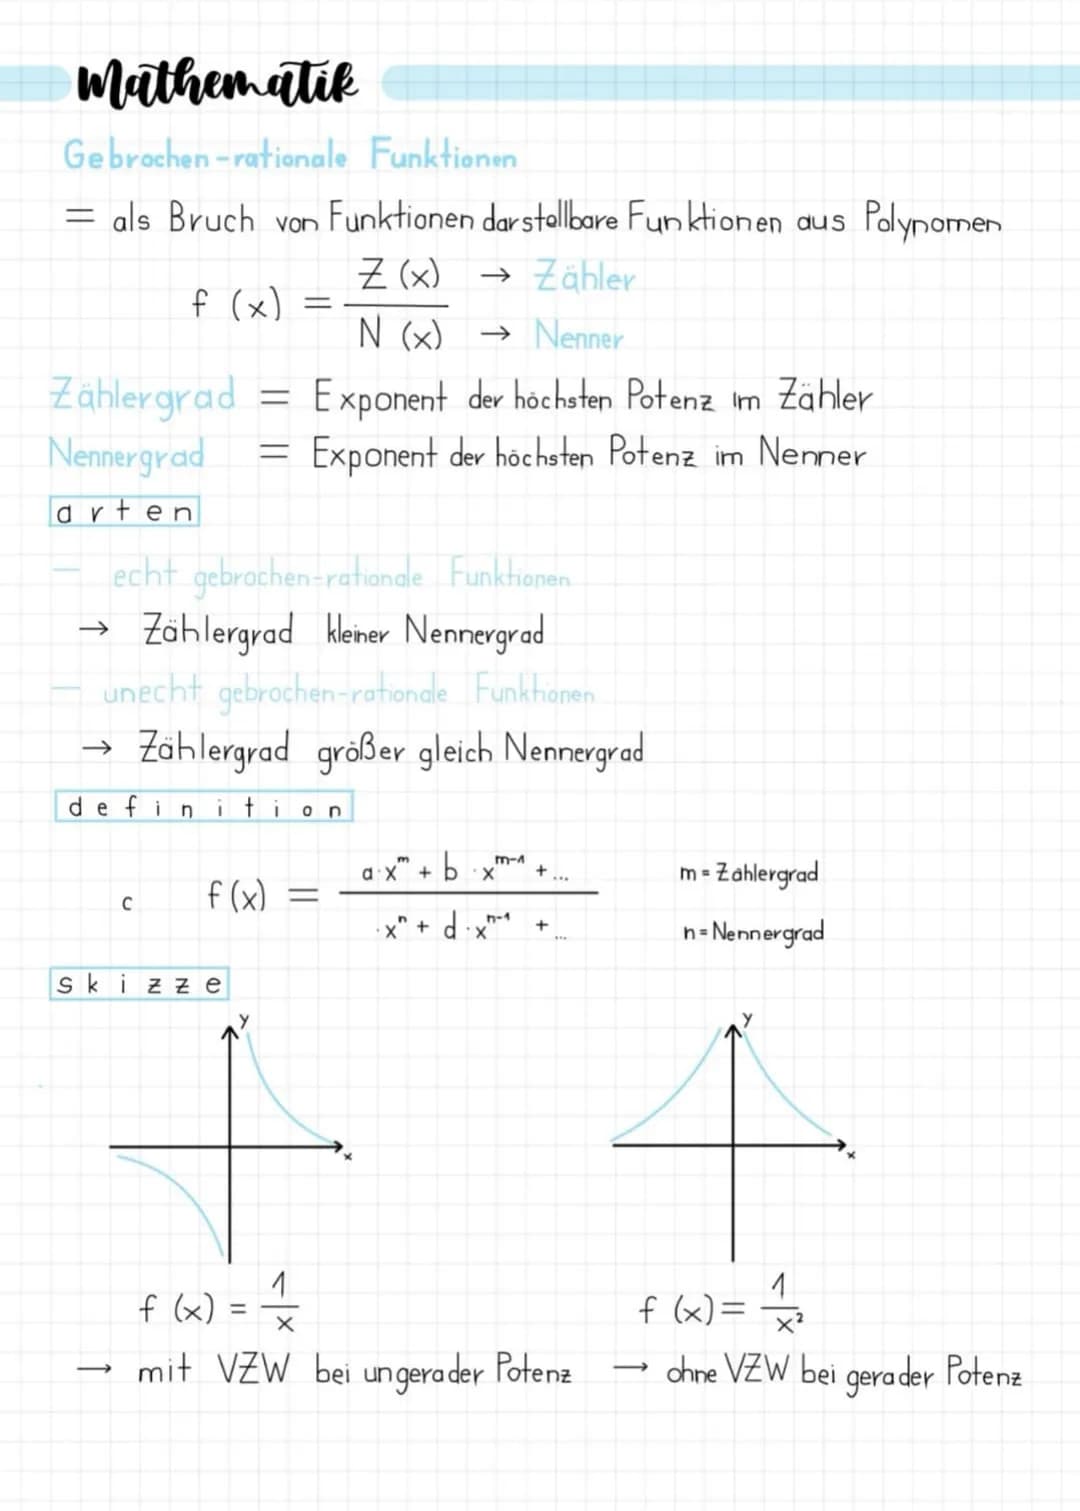 Mathematik
Gebrochen-rationale Funktionen
= als Bruch von Funktionen darstellbare Funktionen aus Polynomen
f (x) = Z (x) / N (x)
→ Zähler
→ Nenner
Zählergrad = Exponent der höchsten Potenz im Zähler
Nennergrad = Exponent der höchsten Potenz im Nenner
arten
— echt gebrochen-rationale Funktionen
→ Zählergrad kleiner Nennergrad
— unecht gebrochen-rationale Funktionen
→ Zählergrad größer gleich Nennergrad
definition
a·x^m + b·x^(m-1) + ...
m = Zählergrad
c f(x) =
·x^n + d·x^(n-1) + ...
n = Nennergrad
skizze
y y
x x
f (x) = 1/x f (x) = 1/x²
→ mit VZW bei ungerader Potenz → ohne VZW bei gerader Potenz